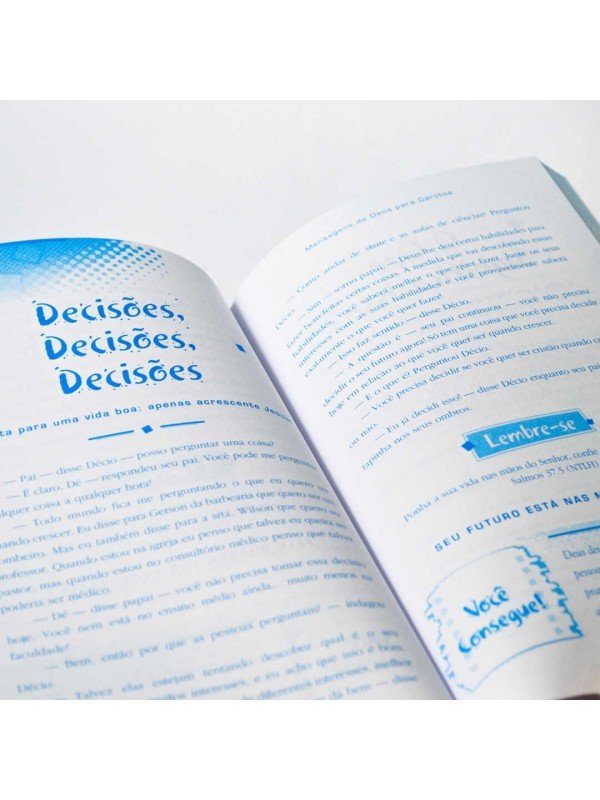 Decisões,
Decisões,
Decisões
ta para uma vida boa: apenas acrescente Jesus
— Pai — disse Décio — posso perguntar uma coisa?
— É claro, Dé — respondeu seu pai. Você pode me perguntar
qualquer coisa a qualquer hora!
— Todo mundo fica me perguntando o que eu quero ser
quando crescer. Eu disse para Gerson da barbearia que quero ser um
bombeiro. Mas eu também disse para a srta. Wilson que quero ser
professor. Quando estou na igreja eu penso que talvez eu queira ser
pastor, mas quando estou no consultório médico penso que talvez
poderia ser médico.
— Dé — disse papai — você não precisa tomar essa decisão
hoje. Você nem está no ensino médio ainda... muito menos na
faculdade!
— Bem, então por que as pessoas perguntam? — indagou
Décio.
Talvez elas estejam tentando descobrir qual é o seu
muitos interesses, e eu acho que isso é bom.
diferentes interesses, melhor
dá bem — disse
Mensagens de Deus para Garotos
— Como andar de skate e as aulas de ciências? Perguntou
Décio.
— Sim — sorriu papai. — Deus lhe deu certas habilidades para
fazer bem certas coisas. À medida que vai descobrindo essas
habilidades, você saberá melhor o que quer fazer. Junte os seus
interesses com as suas habilidades e você provavelmente saberá
exatamente o que você quer fazer!
— Isso faz sentido — disse Décio.
— A questão é — seu pai continuou — você não precisa
decidir o seu futuro agora! Só tem uma coisa que você precisa decidir
hoje em relação ao que você quer ser quando crescer.
— E o que é? Perguntou Décio.
— Você precisa decidir se você quer ser cristão quando c
ou não.
— Eu já decidi isso! — disse Décio enquanto seu pai
tapinha nos seus ombros.
Lembre-se
Ponha a sua vida nas mãos do Senhor, confie
Salmos 37.5 (NTLH)
SEU FUTURO ESTÁ NAS M
Você
Consegue!
Deus de
pesso